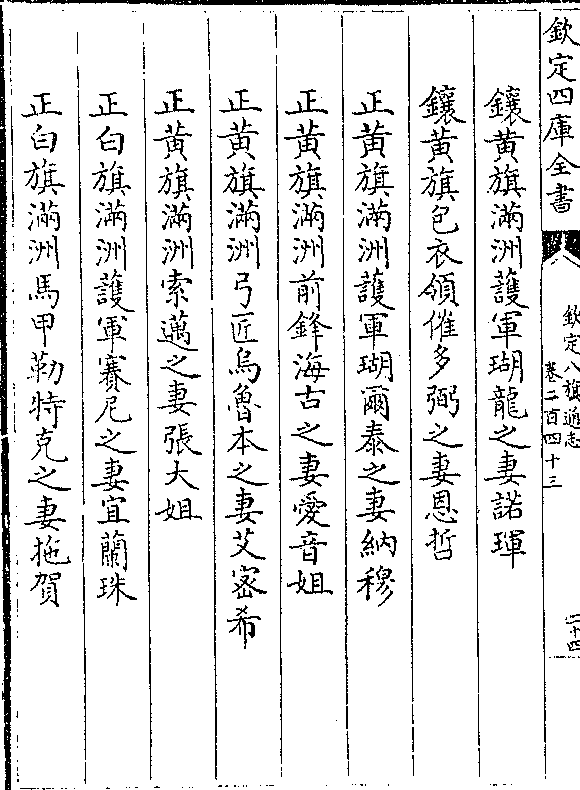 欽定四庫全書
欽定八旗通志
卷二百四十三
二十四
鑲黄旗滿洲䕶軍瑚龍之妻諾琿
鑲黄旗包衣領催多弼之妻恩哲
正黄旗滿洲䕶軍瑚爾泰之妻納穆
正黄旗滿洲前鋒海古之妻愛音姐
正黄旗滿洲弓匠烏魯本之妻艾宻希
正黄旗滿洲索邁之妻張大姐
正白旗滿洲䕶軍賽尼之妻宜蘭珠
正白旗滿洲馬甲勒特克之妻拖賀